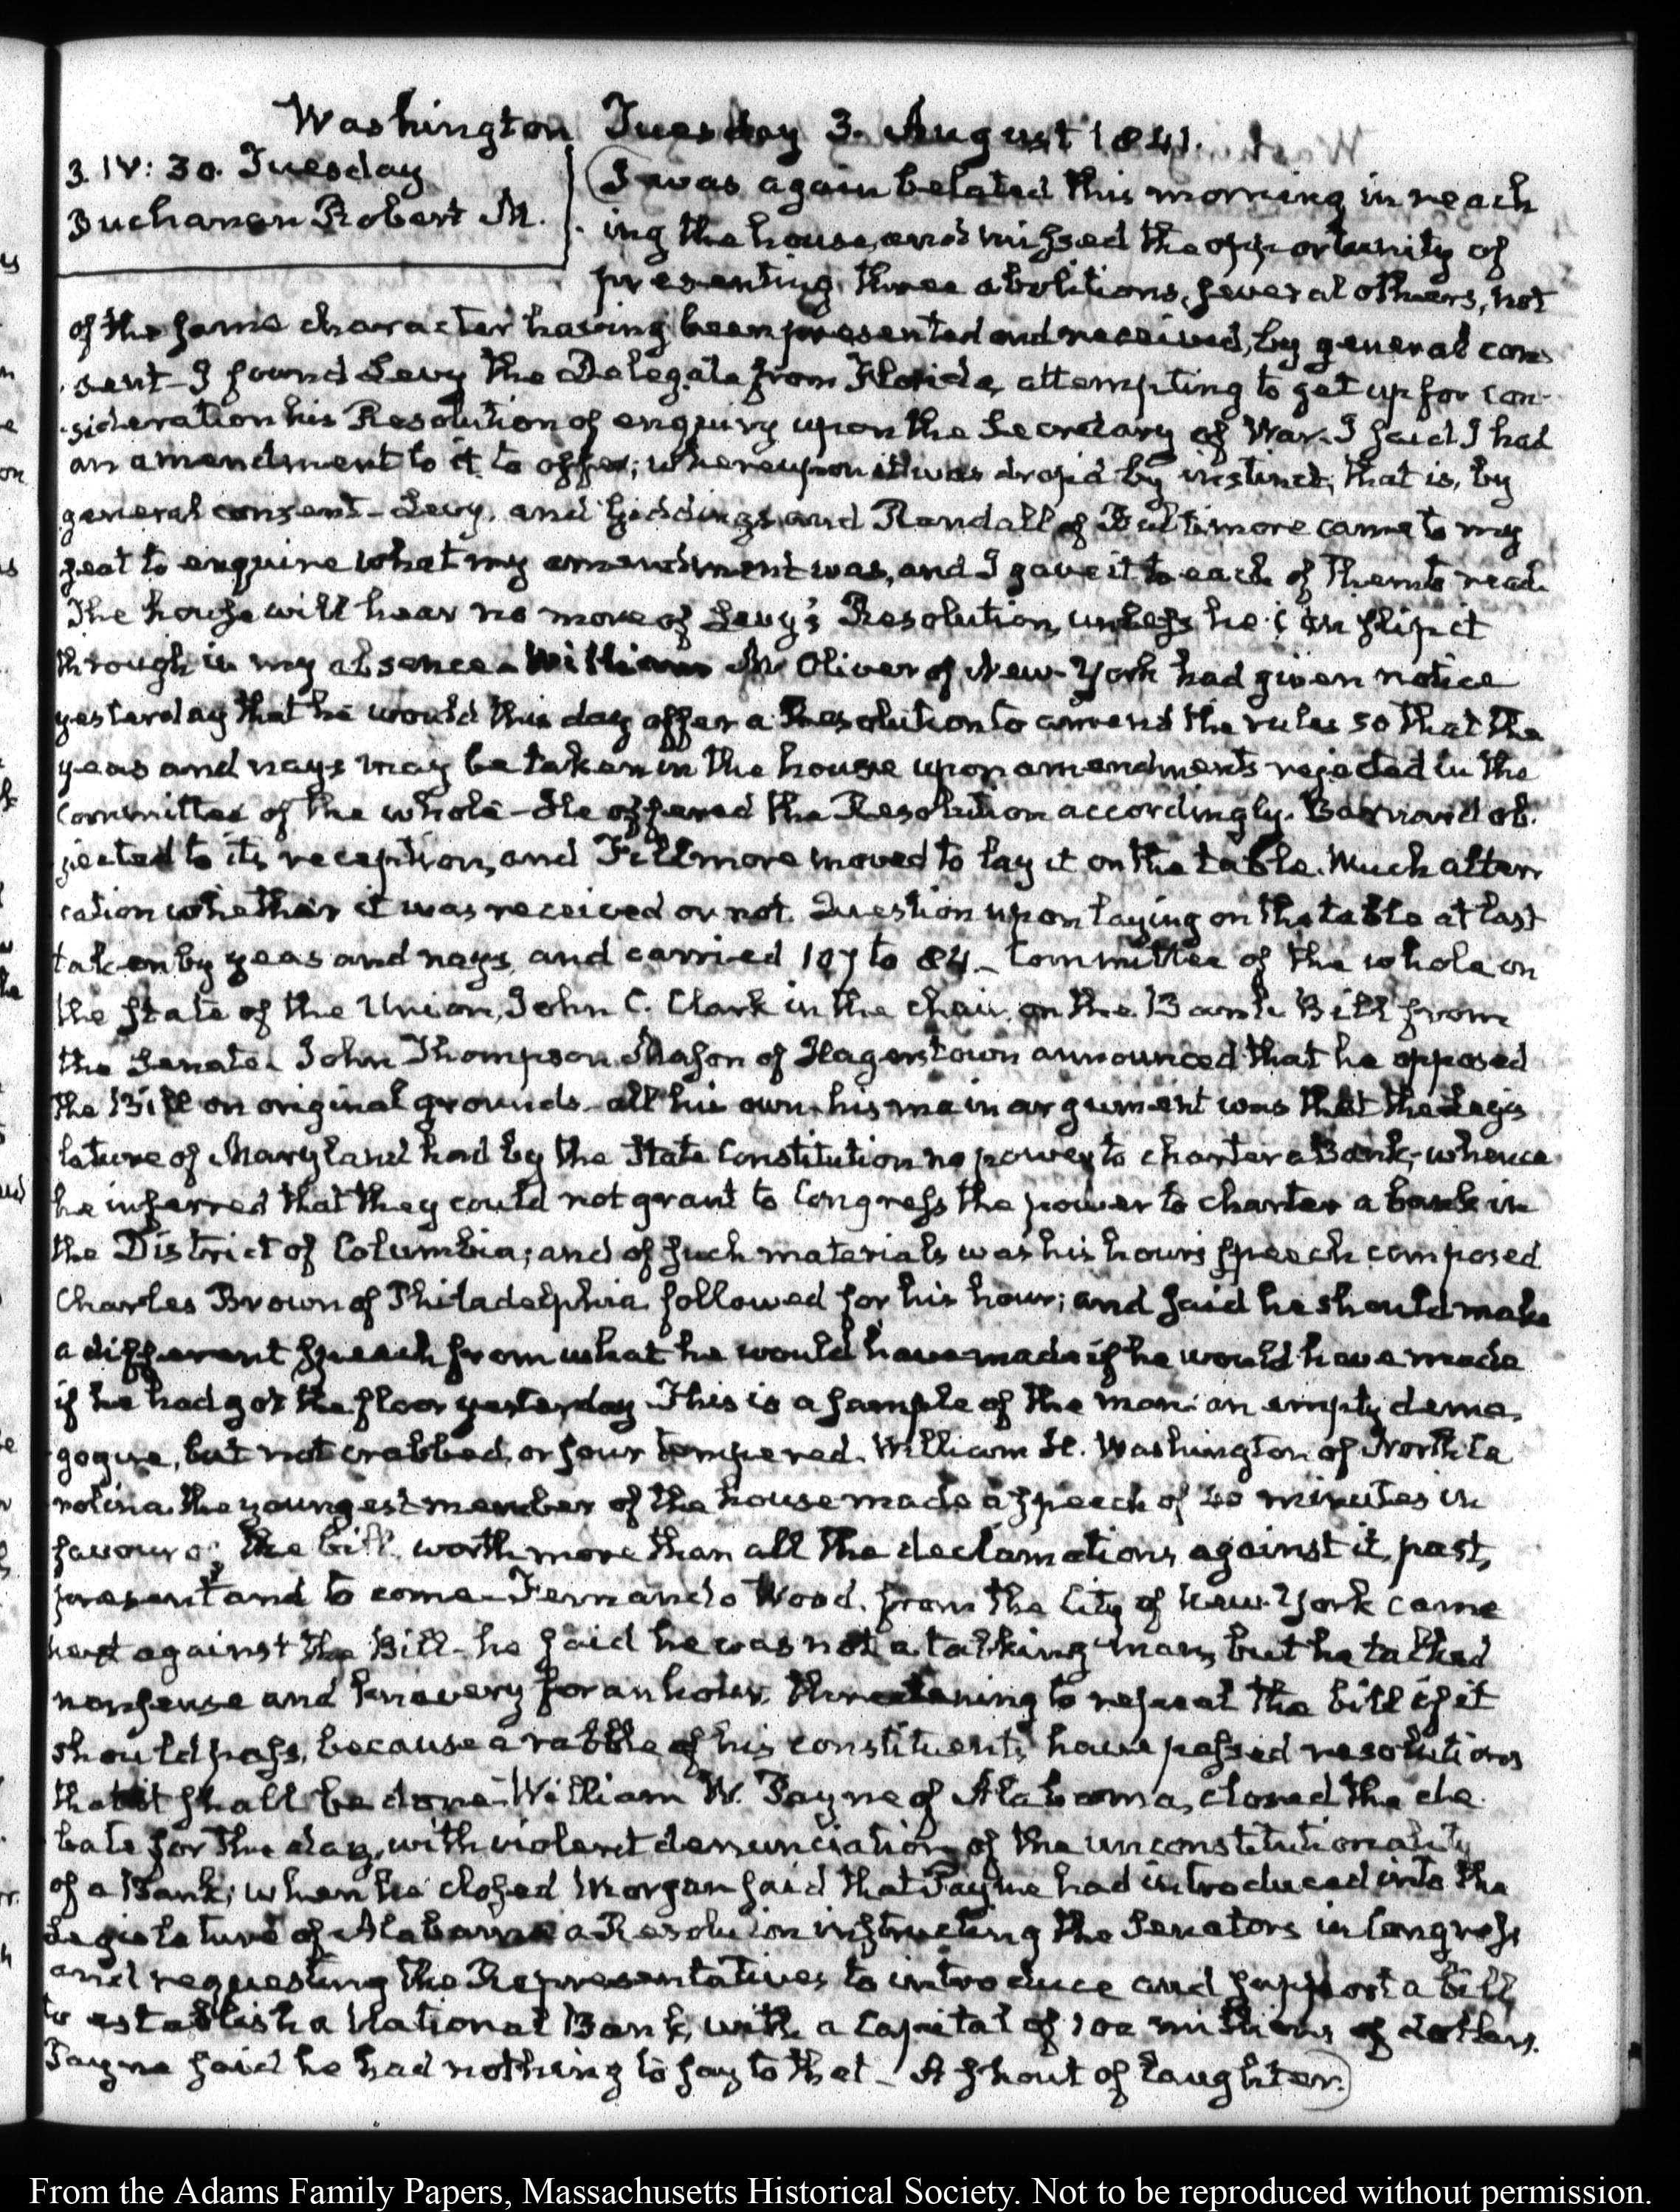 Washington Tuesday 3. August 1841.
3. IV: 30. Tuesday
Buchanan Robert M.
I was again belated this morning in reach
ing the house, and missed the opportunity of
presenting three abolitions, several others, not
of the same character having been presented and received, by general con
sent - I found Levy the Delegate from Florida, attempting to get up for con-
sideration his Resolution of enquiry upon the Secretary of War. I said I had
an amendment to it to offer; whereupon it was drop'd by instinct, that is, by
general consent - Levy, and Giddings and Randall of Baltimore came to my
seat to enquire what my amendment was, and I gave it to each of them to read.
The house will hear no more of Levy's Resolution, unless he can slip it
through in my absence - William M. Oliver of New-York had given notice
yesterday that he would this day offer a Resolution to amend the rules so that the
yeas and nays may be taken in the house upon amendments rejected in the
committee of the whole - He offered the Resolution accordingly. Barnard ob-
jected to its reception, and Fillmore moved to lay it on the table. Much alter
cation whether it was received or not. Question upon laying on the table at last
taken by yeas and nays, and carried 107 to 84 - Committee of the whole on
the State of the Union, John C. Clark in the chair, on the Bank Bill from
the Senate. John Thompson Mason of Hagerstown announced that he opposed
the Bill on original grounds - all his own - his main argument was that the Legis
lature of Maryland had by the State Constitution no power to charter a Bank; whence
he inferred that they could not grant to Congress the power to charter a bank in
the District of Columbia; and of such materials was his hour's speech composed
Charles Brown of Philadelphia followed for his hour; and said he should make
a different speech from what he would have made if he would have made
if he had got the floor yesterday. This is a sample of the man: an empty dema-
gogue, but not crabbed, or sour tempered. William H. Washington of North Ca
rolina the youngest member of the house made a speech of 20 minutes in
favour of the bill, worth more than all the declamations against it, past,
present and to come - Fernando Wood, from the City of New-York came
next against the Bill - he said he was not a talking man, but he talked
nonsense and knavery for an hour, threatening to repeal the bill if it
should pass, because a rabble of his constituents have passed resolutions
that it shall be done - William W. Payne of Alabama, closed the de-
bate for the day, with violent denunciation of the unconstitutionality
of a Bank; when he closed Morgan said that Payne had introduced into the
Legislature of Alabama a Resolution instructing the Senators in Congress
and requesting the Representatives to introduce and support a bill
to establish a National Bank, with a Capital of 100 millions of dollars.
Payne said he had nothing to say to that - A shout of laughter.
From the Adams Family Papers, Massachusetts Historical Society. Not to be reproduced without permission.